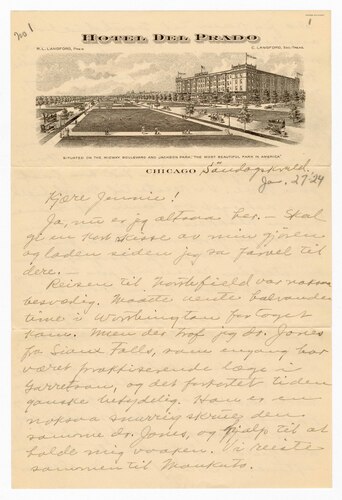 No 1
1
HOTEL DEL PRADO
W. L. LANGFORD, PRES.
C. LANGFORD, SEC-TREAS.
SITUATED ON THE MIDWAY BOULEVARD AND JACKSON PARK, "THE MOST BEAUTIFUL PARK IN AMERICA"
CHICAGO Söndagskveld.
Jan. 27 '24
Kjære Jennie!
Ja, nu er jeg altsaa her. — Skal
gi en kort skisse av min gjøren
og laden siden jeg sa farvel til
dere. —
Reisen til Northfield var noksaa
besværlig. Maatte vente halvanden
time i Worthington før toget
kom. Men der traf jeg dr. Jones
fra Sioux Falls, som engang har
været praktiserende læge i
Garretson, og det forkortet tiden
ganske betydelig. Han er en
noksaa snurrig skrue den
samme dr. Jones, og hjalp til at
holde mig vaaken. Vi reiste
sammen til Mankato.